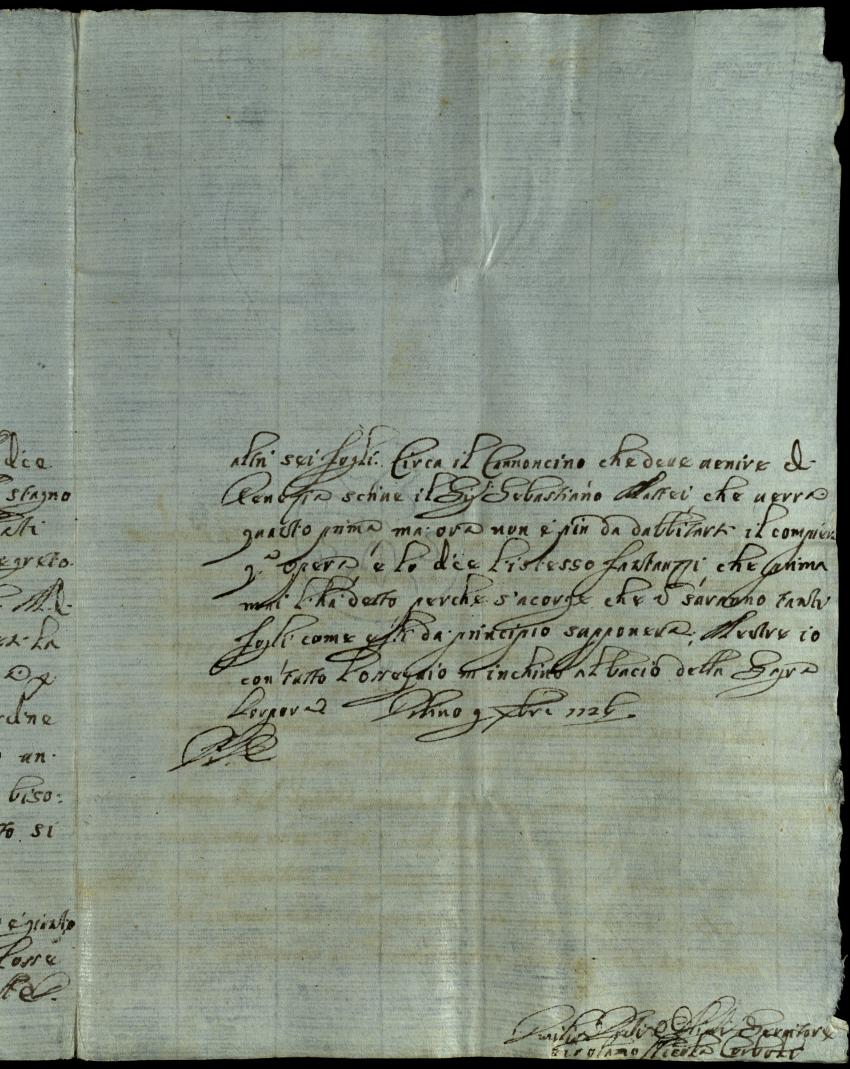 dice
stagno
ati
egreto
la
De
rdne
un
biso:
to si
e gionto
Losse
altri sei fogli. Circa il Cannoncino che deve venire di
Venezia scrive il Sig.r Sebastiano Mattei che verrà
quanto prima ma ora non è più da dubbitarsi il compier
q.a opera e lo dice l'istesso Fantauzzi che prima
mai l'hà detto perche s'acorge che vi sarnano tanti
fogli come egli da principio supponeva, Mentre io
con tutto l'ossequio m'inchino al bacio della Sagra
Porpora Urbino 9 Xbre 172
Umiliss.o Servitore
Girolamo Nicola